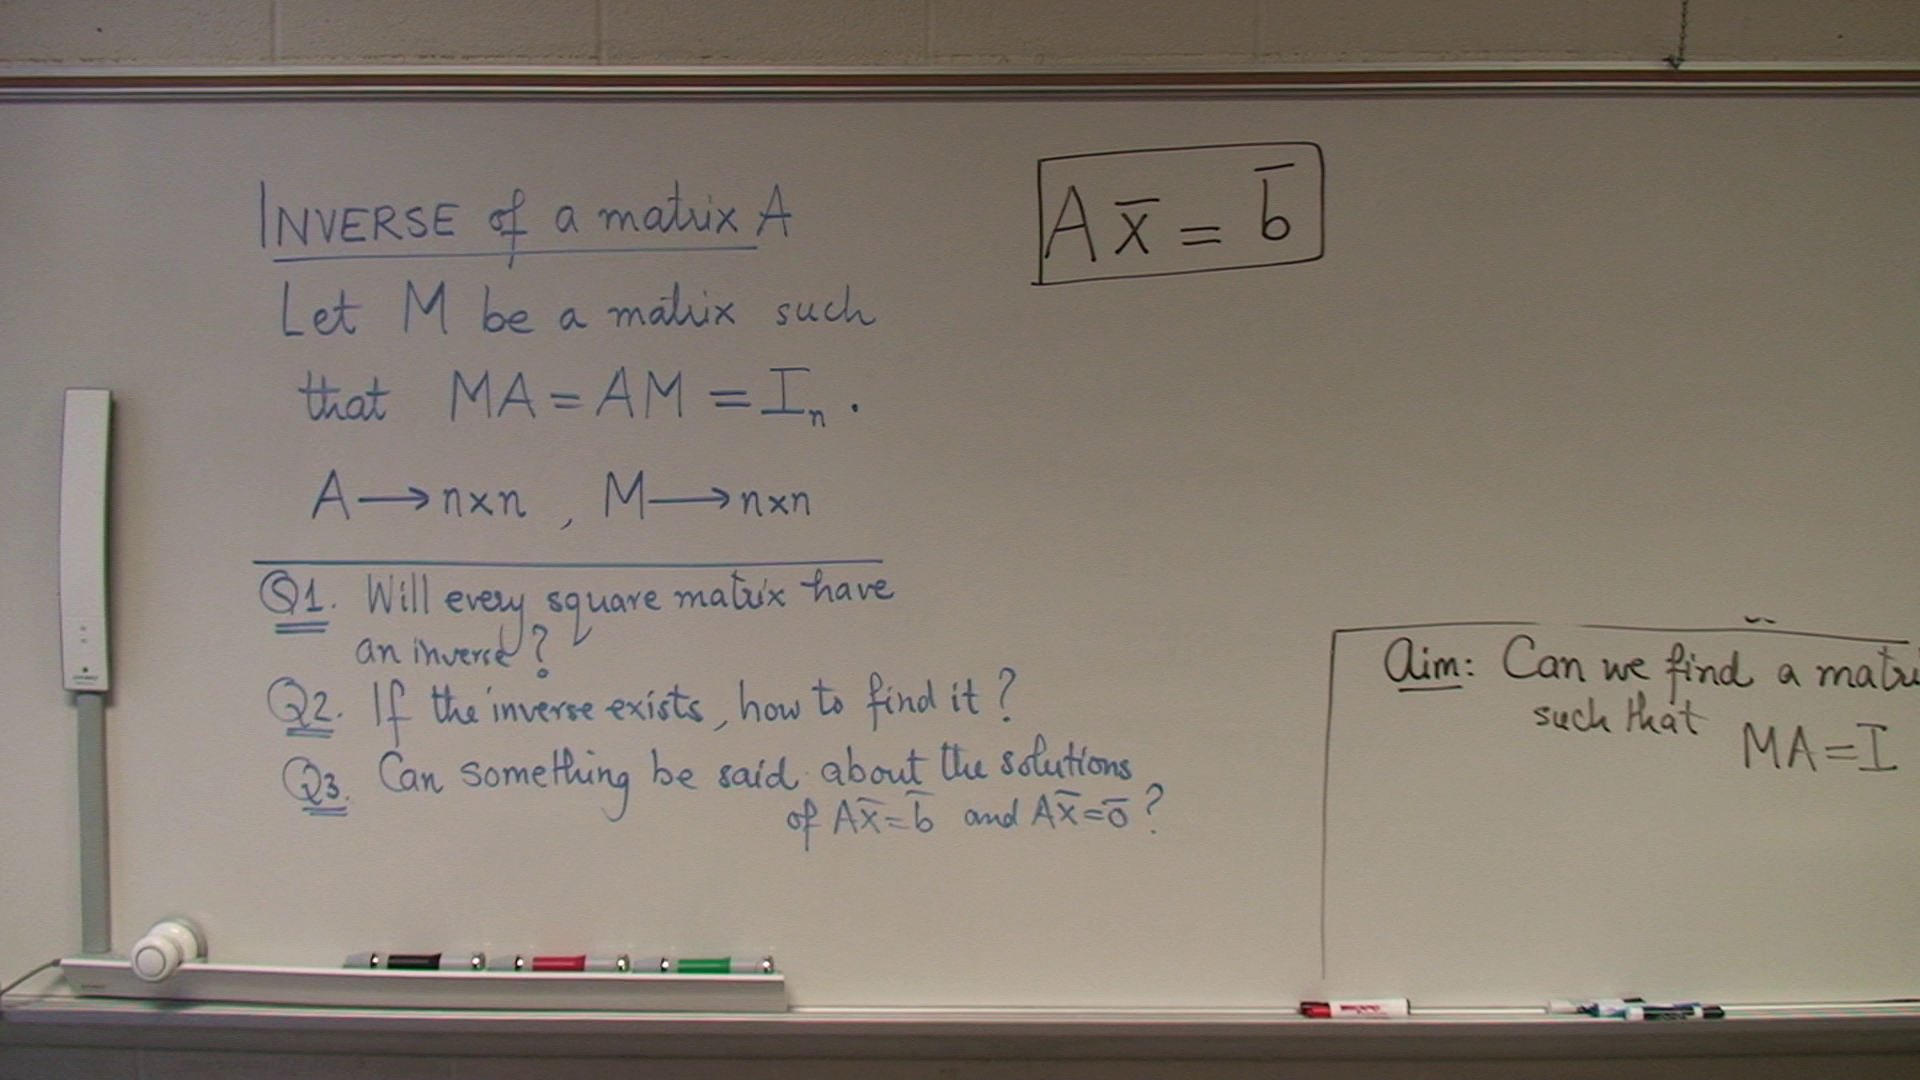 INVERSE of a matrix A
Let M be a matrix such
that MA = AM = Iₙ .
A ⟶ n×n , M ⟶ n×n
Q1. Will every square matrix have
an inverse?
Q2. If the inverse exists, how to find it?
Q3. Can something be said about the solutions
of Ax̄=b̄ and Ax̄=ō?
Ax̄ = b̄
Aim: Can we find a matri
such that
MA=I